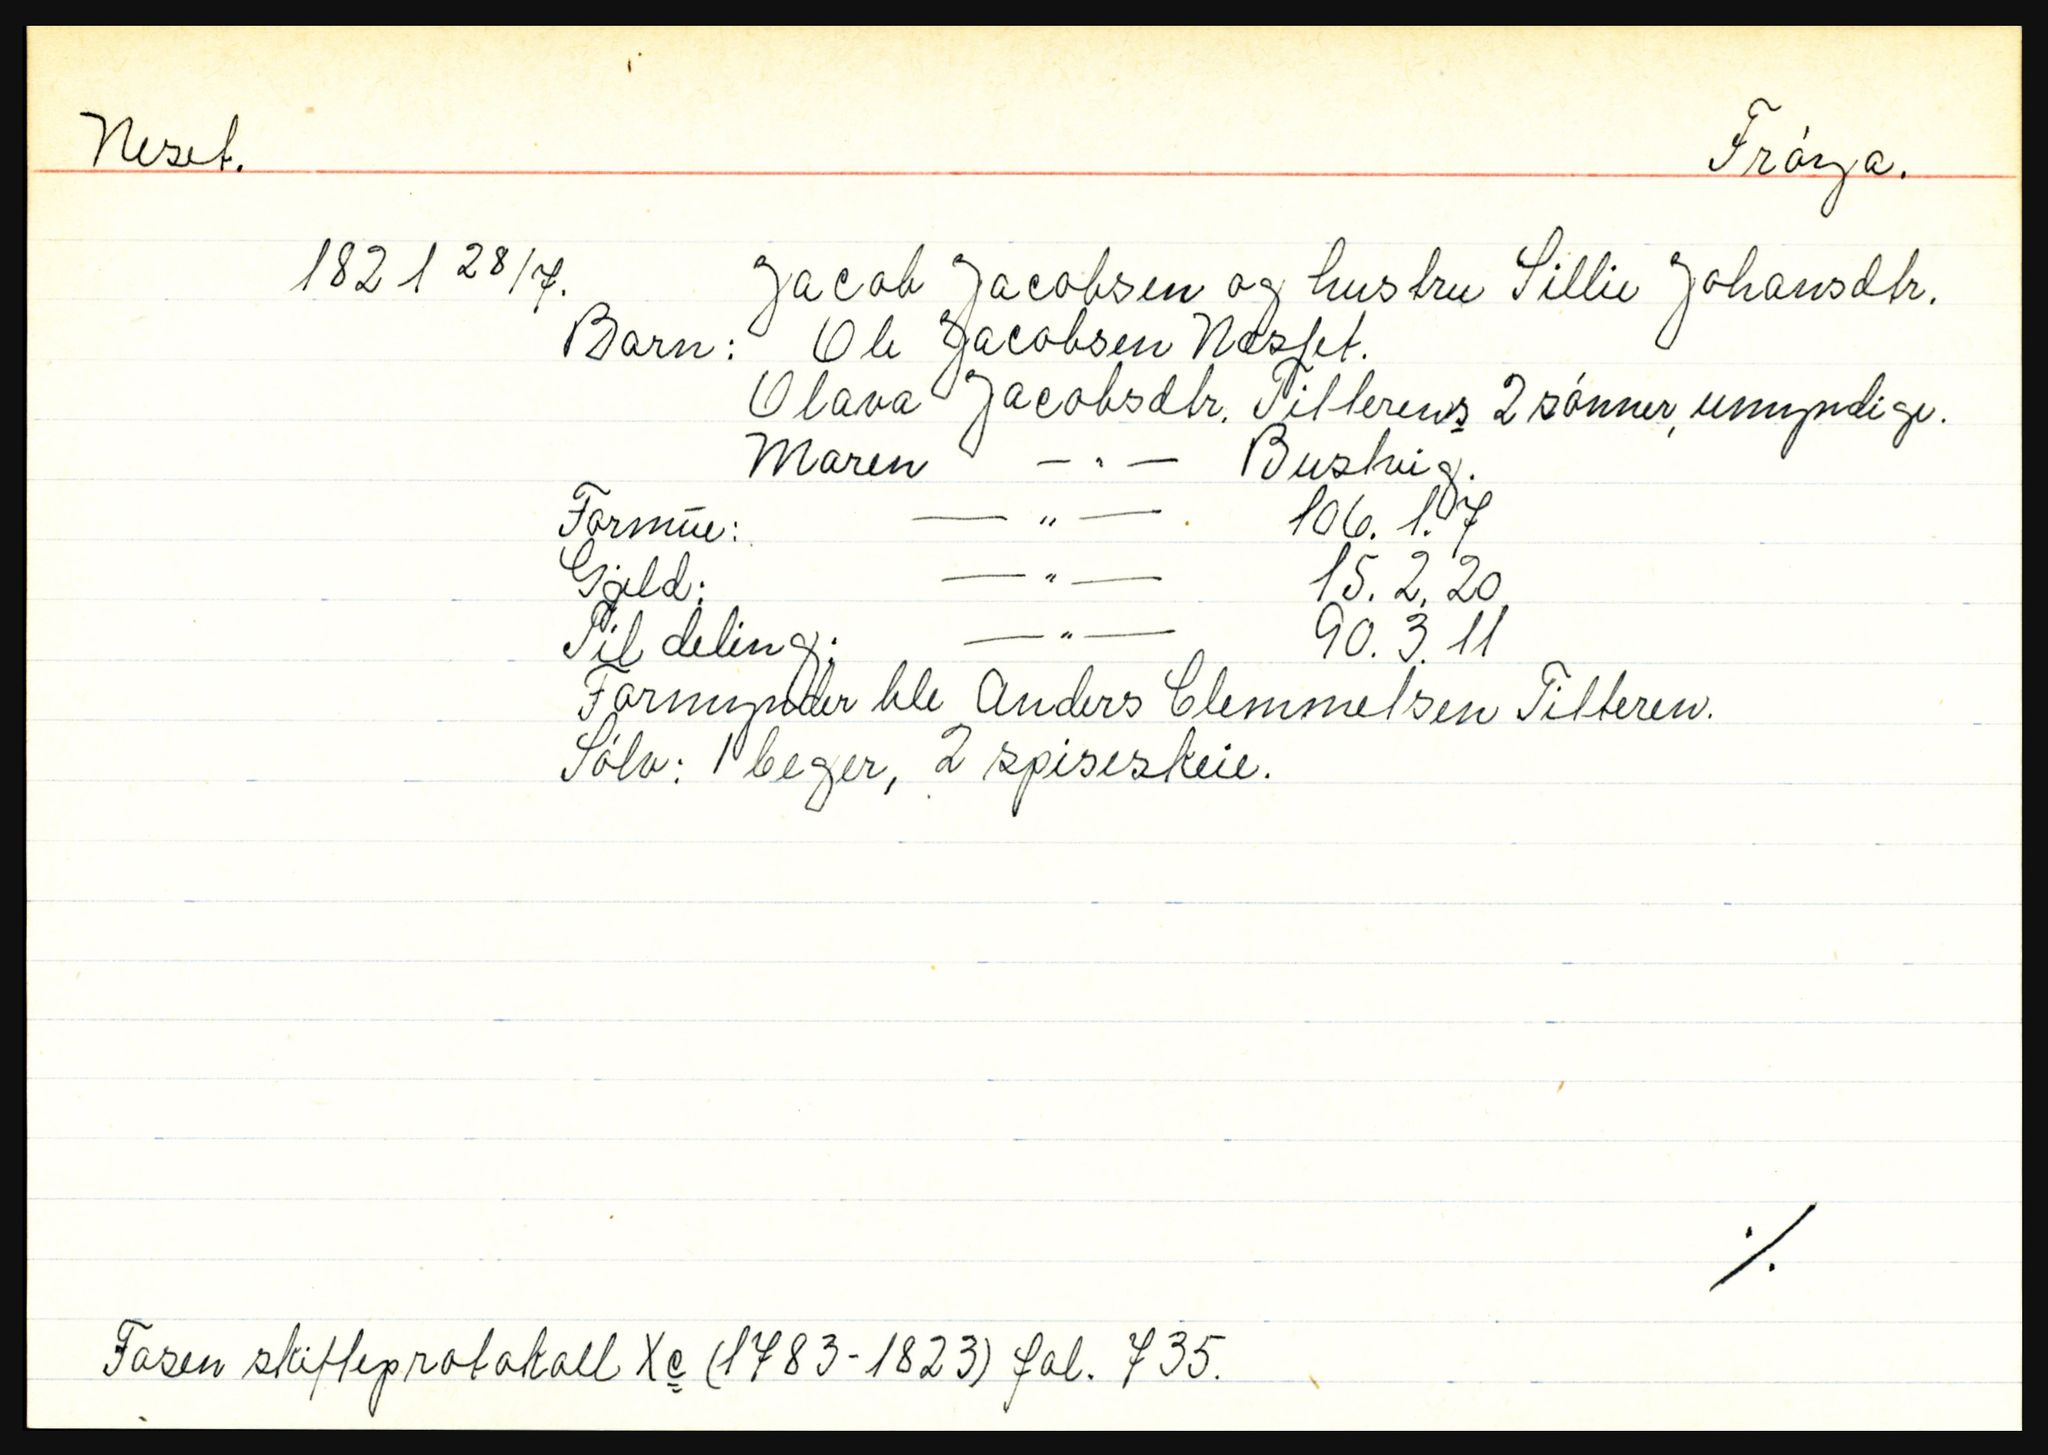 Neset. Fröya.
1821 28/7. Jacob Jacobsen og hustru Sillie Johansdtr.
Barn: Ole Jacobsen Nesset.
Olava Jacobsdtr. Tillerens 2 sönner, umyndige.
Maren — " — Buskvig.
Formue: — " — 106. 1. 7
Gjeld: — " — 15. 2. 20
Til deling: — " — 90. 3. 11
Formynder ble Anders Clemmetsen Tilteren.
Sölv: 1 beger, 2 spiseskeie.
./.
Fosen skifteprotokoll Xc (1783-1823) fol. 735.